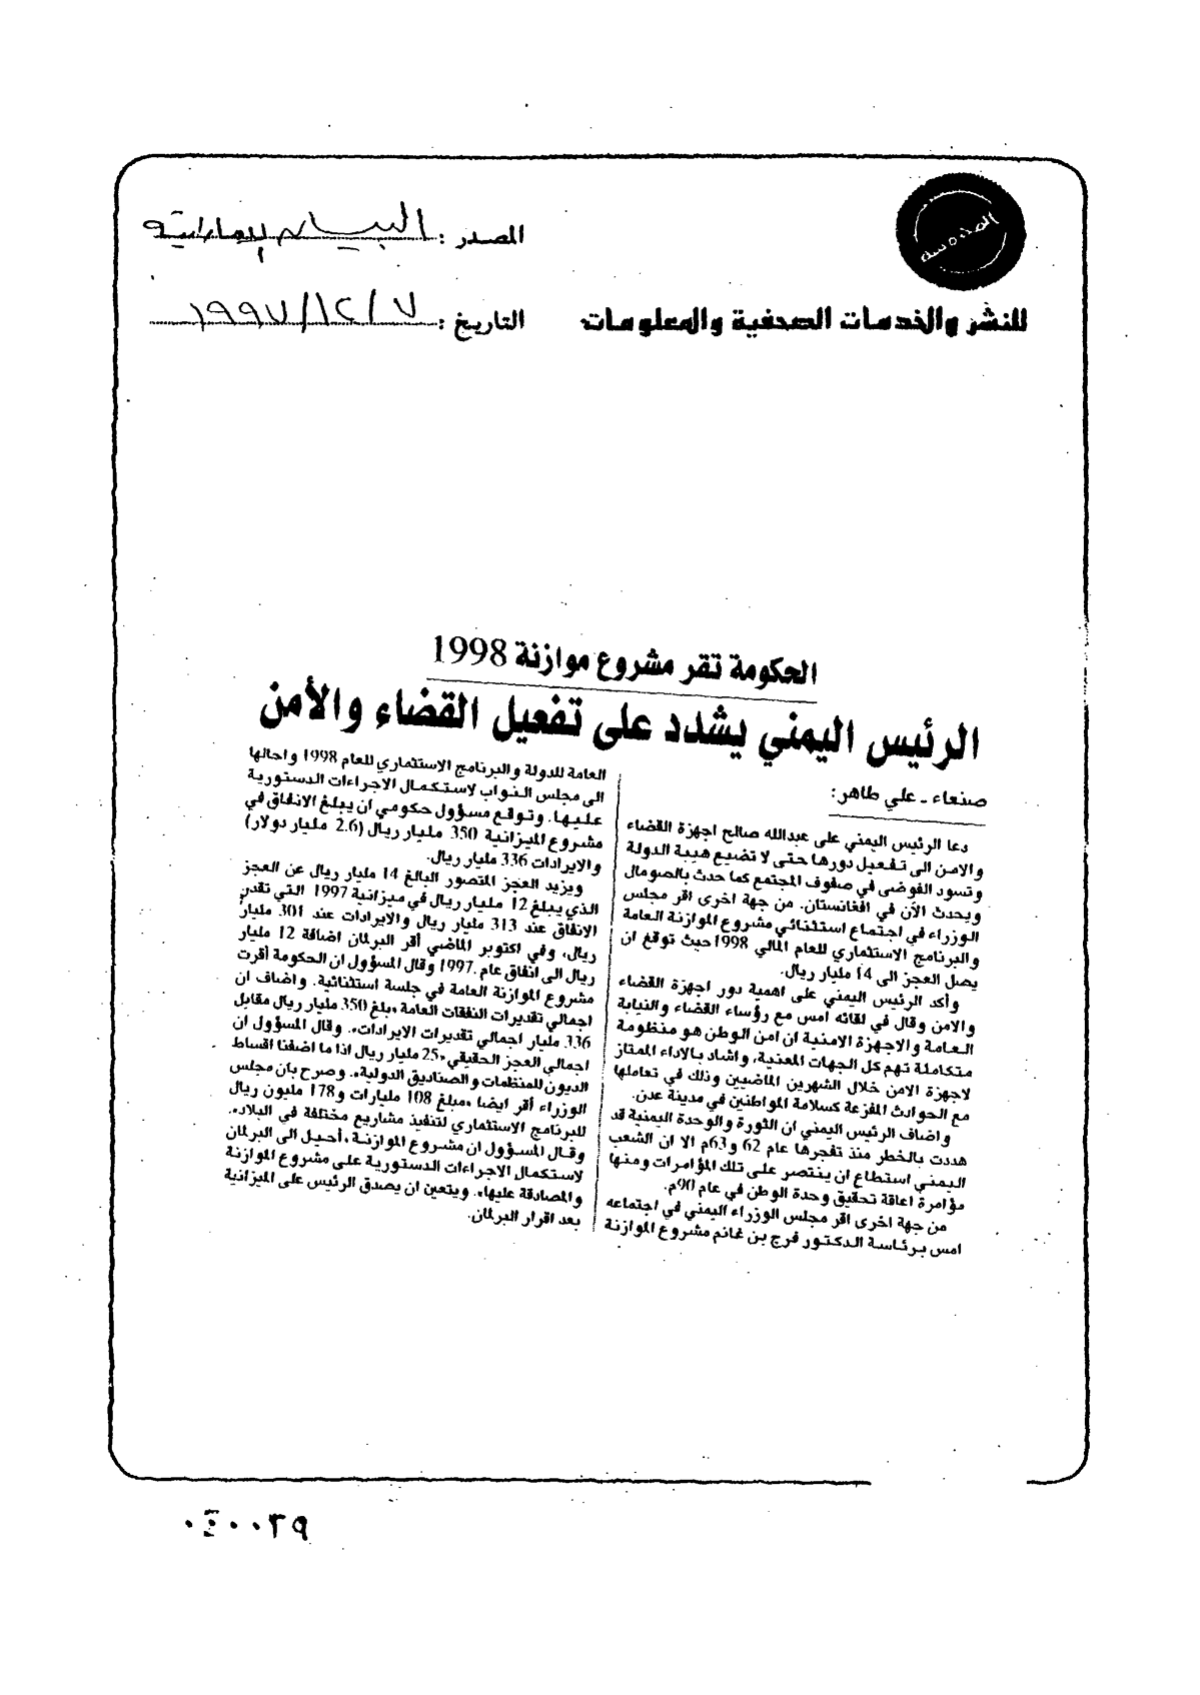 المصدر : البيان الإماراتية
للنشر والخدمات الصحفية والمعلومات
التاريخ : ٧ / ١٢ / ١٩٩٧
الحكومة تقر مشروع موازنة 1998
الرئيس اليمني يشدد على تفعيل القضاء والأمن
صنعاء ـ علي طاهر:
دعا الرئيس اليمني على عبدالله صالح اجهزة القضاء
والامن الى تفعيل دورها حتى لا تضيع هيبة الدولة
وتسود الفوضى في صفوف المجتمع كما حدث بالصومال
ويحدث الآن في افغانستان. من جهة اخرى اقر مجلس
الوزراء في اجتماع استثنائي مشروع الموازنة العامة
والبرنامج الاستثماري للعام المالي 1998 حيث توقع ان
يصل العجز الى 14 مليار ريال.
وأكد الرئيس اليمني على اهمية دور اجهزة القضاء
والامن وقال في لقائه امس مع رؤساء القضاء والنيابة
العامة والاجهزة الامنية ان امن الوطن هو منظومة
متكاملة تهم كل الجهات المعنية، واشاد بالاداء الممتاز
لاجهزة الامن خلال الشهرين الماضيين وذلك في تعاملها
مع الحوادث المفزعة كسلامة المواطنين في مدينة عدن.
واضاف الرئيس اليمني ان الثورة والوحدة اليمنية قد
هددت بالخطر منذ تفجرها عام 62 و63م الا ان الشعب
اليمني استطاع ان ينتصر على تلك المؤامرات ومنها
مؤامرة اعاقة تحقيق وحدة الوطن في عام 90م.
من جهة اخرى اقر مجلس الوزراء اليمني في اجتماعه
امس برئاسة الدكتور فرج بن غانم مشروع الموازنة
العامة للدولة والبرنامج الاستثماري للعام 1998 واحالها
الى مجلس النواب لاستكمال الاجراءات الدستورية
عليها. وتوقع مسؤول حكومي ان يبلغ الانفاق في
مشروع الميزانية 350 مليار ريال (2.6 مليار دولار)
والايرادات 336 مليار ريال.
ويزيد العجز المتصور البالغ 14 مليار ريال عن العجز
الذي يبلغ 12 مليار ريال في ميزانية 1997 التي تقدر
الانفاق عند 313 مليار ريال والايرادات عند 301 مليار
ريال، وفي اكتوبر الماضي أقر البرلمان اضافة 12 مليار
ريال الى انفاق عام 1997. وقال المسؤول ان الحكومة أقرت
مشروع الموازنة العامة في جلسة استثنائية. واضاف ان
اجمالي تقديرات النفقات العامة «بلغ 350 مليار ريال مقابل
336 مليار اجمالي تقديرات الايرادات». وقال المسؤول ان
اجمالي العجز الحقيقي «25 مليار ريال اذا ما اضفنا اقساط
الديون للمنظمات والصناديق الدولية». وصرح بان مجلس
الوزراء أقر ايضا «مبلغ 108 مليارات و178 مليون ريال
للبرنامج الاستثماري لتنفيذ مشاريع مختلفة في البلاد».
وقال المسؤول ان مشروع الموازنة «أحيل الى البرلمان
لاستكمال الاجراءات الدستورية على مشروع الموازنة
والمصادقة عليها». ويتعين ان يصدق الرئيس على الميزانية
بعد اقرار البرلمان.